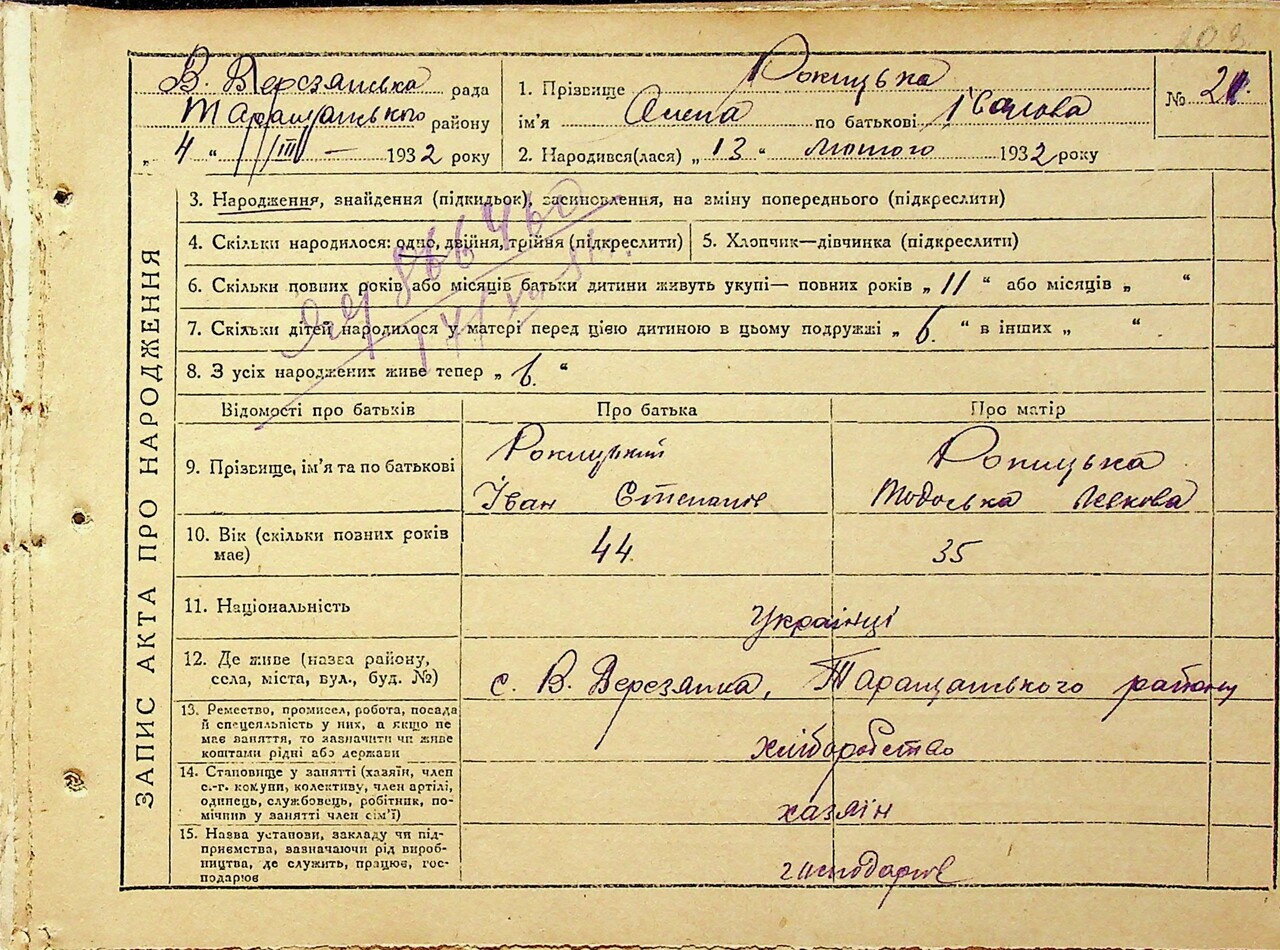 В. Березянська рада
Таращанського району
„ 4 “ /III — 1932 року
1. Прізвище Рокицька
ім'я Олена по батькові Іванова
2. Народився(лася) „ 13 “ лютого 1932 року
№ 21.
ЗАПИС АКТА ПРО НАРОДЖЕННЯ
3. Народження, знайдення (підкидьок), засиновлення, на зміну попереднього (підкреслити)
4. Скільки народилося: одно, двійня, трійня (підкреслити)
5. Хлопчик—дівчинка (підкреслити)
6. Скільки повних років або місяців батьки дитини живуть укупі— повних років „ 11 “ або місяців „ “
7. Скільки дітей народилося у матері перед цією дитиною в цьому подружжі „ 6. “ в інших „ “
8. З усіх народжених живе тепер „ 6. “
Відомості про батьків
Про батька
Про матір
9. Прізвище, ім'я та по батькові
Рокицький
Іван Степанов
Рокицька
Тодоська Левкова
10. Вік (скільки повних років
має)
44
35
11. Національність
Українці
12. Де живе (назва району,
села, міста, вул., буд. №)
с. В. Березянка, Таращанського району
13. Ремество, промисел, робота, посада
й спеціяльність у них, а якщо не
має заняття, то зазначити чи живе
коштами рідні або держави
хліборобство
14. Становище у занятті (хазяїн, член
с.-г. комуни, колективу, член артілі,
одинець, службовець, робітник, по-
мічник у занятті член сім'ї)
хазяїн
15. Назва установи, закладу чи під-
приємства, зазначаючи рід вироб-
ництва, де служить, працює, гос-
подарює